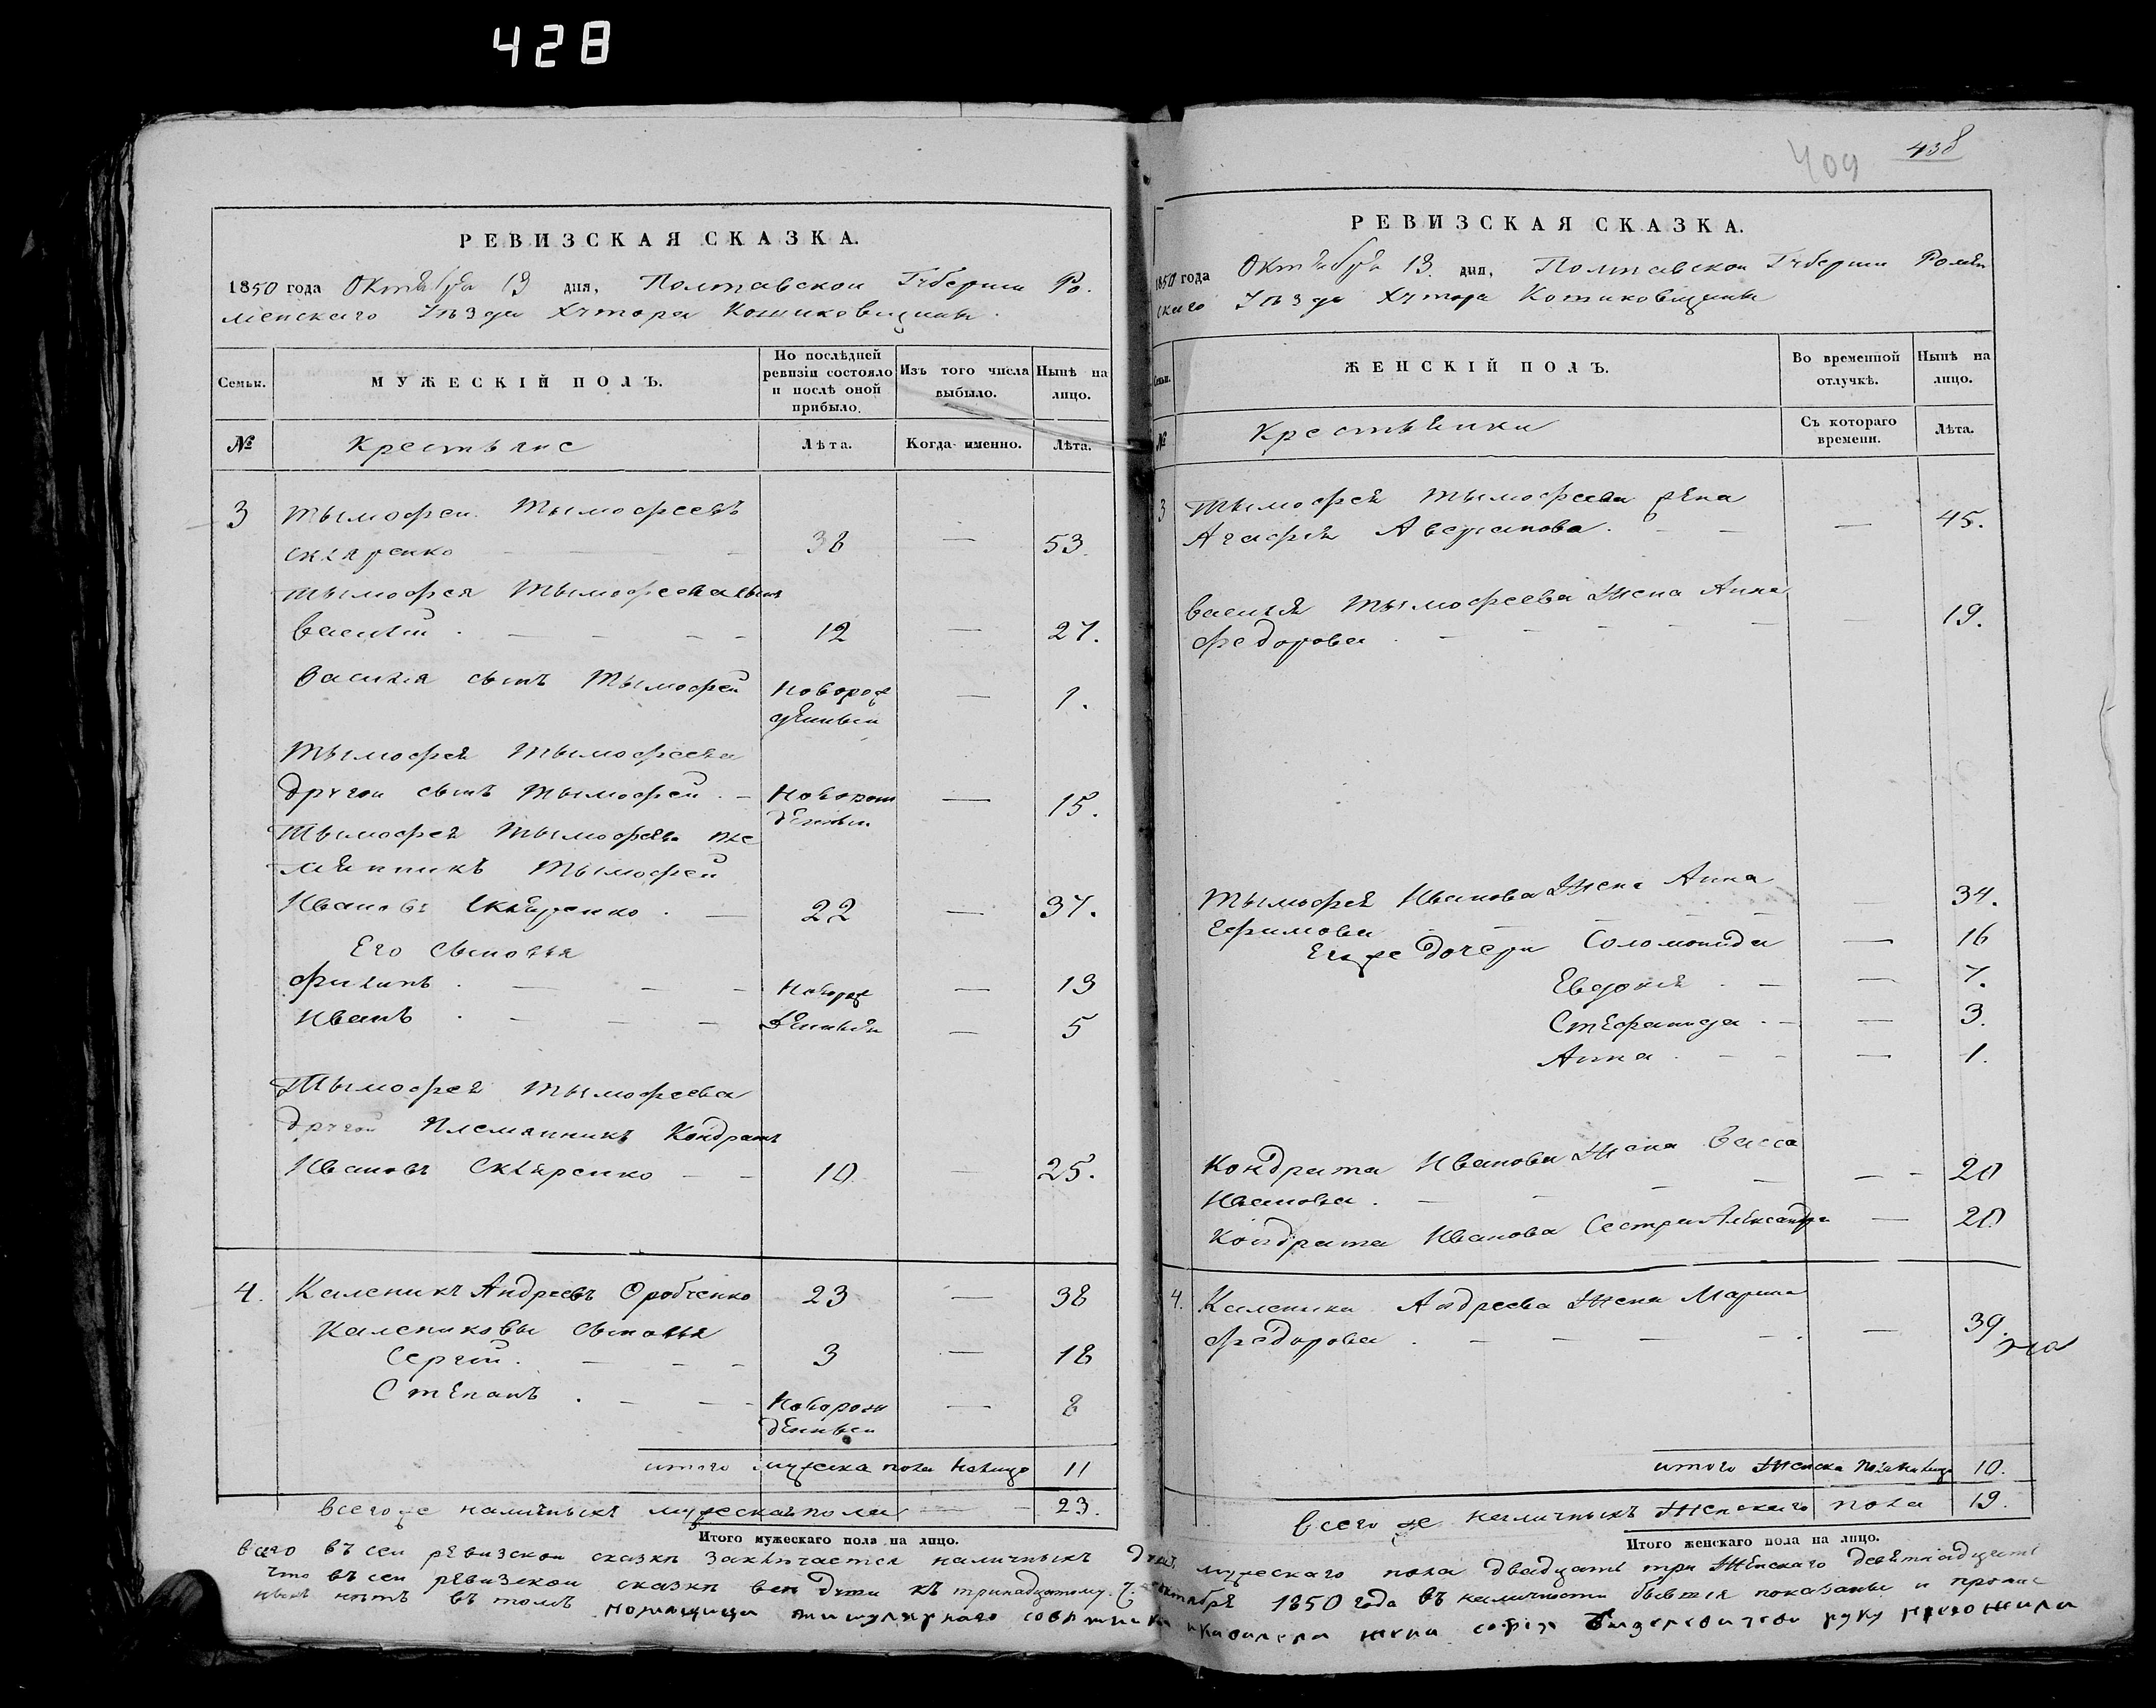 428
РЕВИЗСКАЯ СКАЗКА.
1850 года Октября 13 дня, Полтавской Губернии Ро-
менскаго Уѣзда Хутора Котиковщины.
Семьи.
МУЖЕСКІЙ ПОЛЪ.
По послѣдней ревизіи состояло и послѣ оной прибыло.
Изъ того числа выбыло.
Нынѣ на лицо.
№
Крестьяне
Лѣта.
Когда именно.
Лѣта.
3 Тымофей Тымофеевъ
Скляренко — 38 — 53.
Тымофея Тымофеева сынъ
Василий — 12 — 27.
Василия сынъ Тымофей Новорож
денный — 1.
Тымофея Тымофеева
другой сынъ Тымофей — Новорож
денный — 15.
Тымофея Тымофеева пле
мянникъ Тымофей
Ивановъ Скляренко — 22 — 37.
Его сыновья
Филипъ — Новорож — 13
Иванъ — денныи — 5
Тымофея Тымофеева
другой Племянникъ Кондратъ
Ивановъ Скляренко — 10 — 25.
4. Каленикъ Андреевъ Оробченко 23 — 38
Калениковы сыновья
Сергий — 3 — 18
Степанъ — Новорож
денныи — 8
итого мужеска пола налицо 11
всего же наличныхъ мужеска пола — 23.
Итого мужескаго пола на лицо.
409
438
РЕВИЗСКАЯ СКАЗКА.
1850 года Октября 13. дня, Полтавской Губернии Ромен
скаго Уѣзда Хутора Котиковщины
Семьи.
ЖЕНСКІЙ ПОЛЪ.
Во временной отлучкѣ.
Нынѣ на лицо.
№
Крестьянки
Съ котораго времени.
Лѣта.
3 Тымофея Тымофеева жена
Агафия — 45.
Василия Тымофеева жена Анна
Федорова — 19.
Тымофея Иванова жена Анна
Ефимова — 34.
Ея же дочери Соломонида — 16
Евдокия — 7.
Стефанида — 3.
Анна — 1.
Кондрата Иванова жена Васса
Иванова — 20
Кондрата Иванова сестра Александра — 20
4. Каленика Андреева жена Марина
Федорова — 39.
итого женска пола налицо 10.
всего же наличныхъ женскаго пола 19.
Итого женскаго пола на лицо.
всего въ сей ревизской сказкѣ заключается наличныхъ душъ мужескаго пола двадцать три женскаго девятнадцать
что въ сей ревизской сказкѣ все души къ тринадцатому ч. октября 1850 года въ наличности бывшия показаны и
нѣтъ въ томъ помѣщица титулярнаго совѣтника и кавалера жена руку приложила